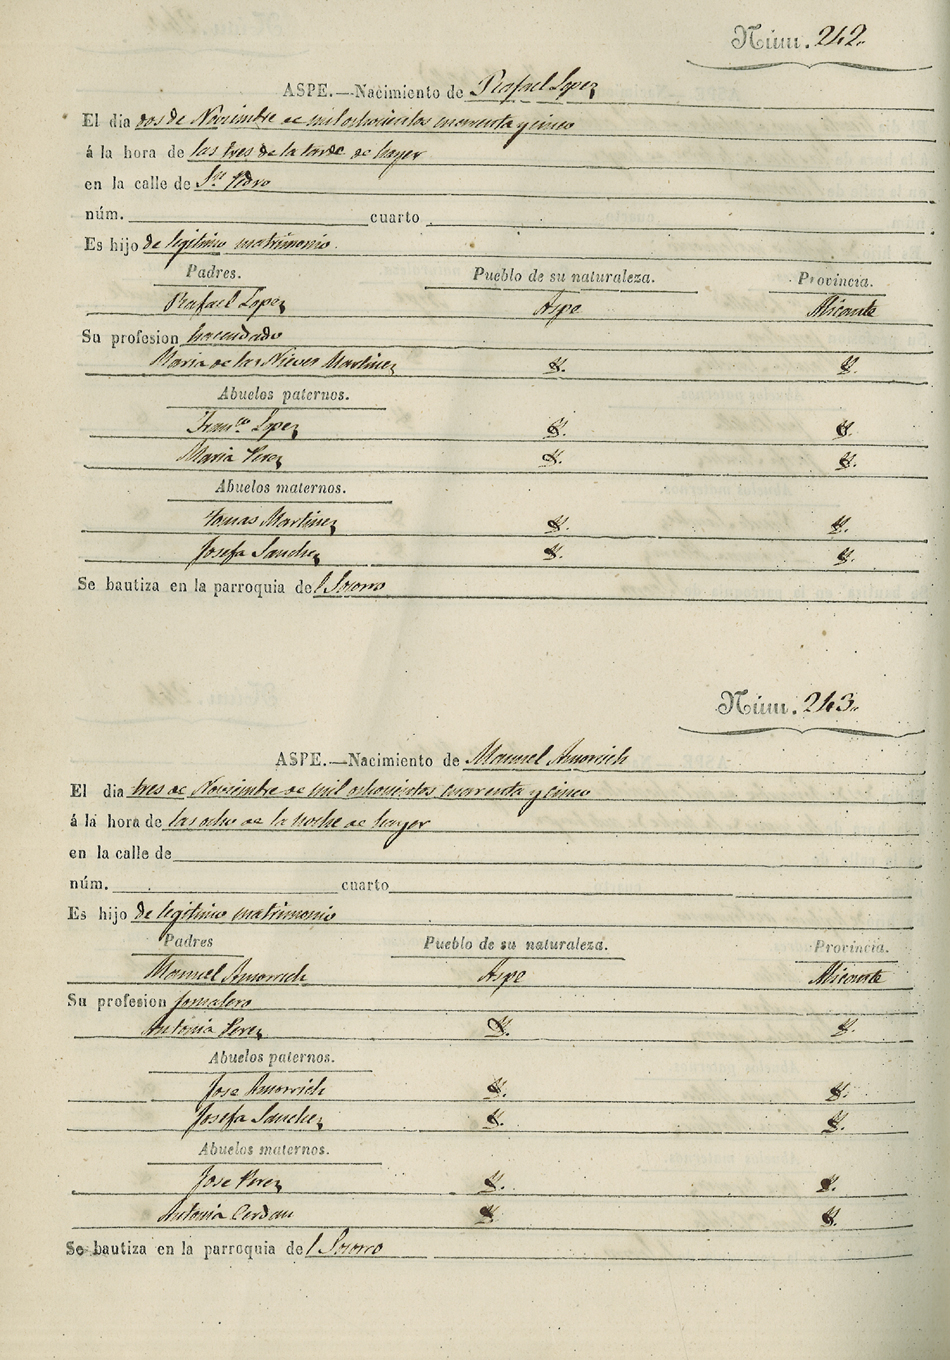 Núm. 242.
ASPE.—Nacimiento de Rafael Lopez
El dia dos de Noviembre de mil ochocientos cuarenta y cinco
á la hora de las tres de la tarde de hayer
en la calle de Sn. Pedro
núm. cuarto
Es hijo de legitimo matrimonio
Padres. Pueblo de su naturaleza. Provincia.
Rafael Lopez Aspe Alicante
Su profesion hacendado
Maria de las Nieves Martinez
Abuelos paternos.
Franco. Lopez
Maria Perez
Abuelos maternos.
Tomas Martinez
Josefa Sanchez
Se bautiza en la parroquia del Socorro
Núm. 243.
ASPE.—Nacimiento de Manuel Amorich
El dia tres de Noviembre de mil ochocientos cuarenta y cinco
á la hora de las ocho de la noche de hayer
en la calle de
núm. cuarto
Es hijo de legitimo matrimonio
Padres Pueblo de su naturaleza. Provincia.
Manuel Amorrich Aspe Alicante
Su profesion jornalero
Antonia Perez
Abuelos paternos.
Jose Amorrich
Josefa Sanchez
Abuelos maternos.
Jose Perez
Antonia Cerdan
Se bautiza en la parroquia del Socorro